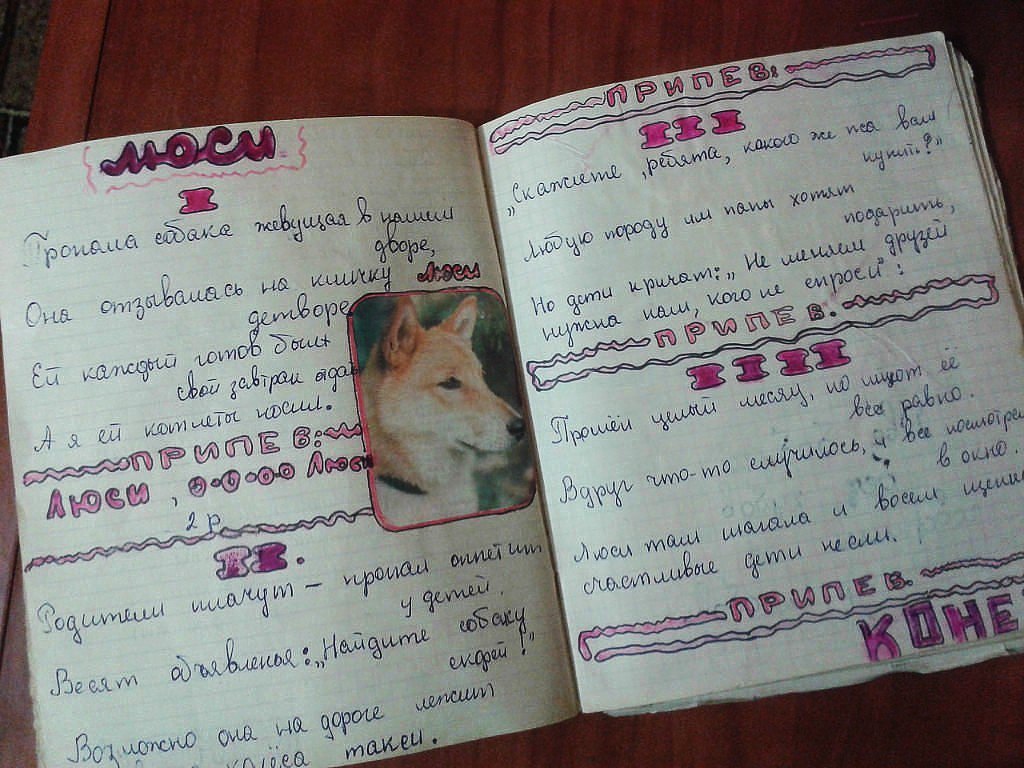 ЛЮСИ
I
Пропала собака жевущая в нашем
дворе,
Она отзывалась на кличку Люси
детворе
Ей каждый готов был
свой завтрак отдат
А я ей котлеты носил.
ПРИПЕВ:
Люси, О-О-О-О Люси
2 р
II.
Родители плачут – пропал аппетит
у детей.
Весят объявленья: „Найдите собаку
скорей!"
Возможно она на дороге лежит
колёса такси.
ПРИПЕВ:
III
„Скажите, ребята, какого же пса вам
купить?"
Любую породу им папы хотят
подарить,
Но дети кричат: „Не меняем друзей
нужна нам, кого не спроси":
ПРИПЕВ.
IIII
Прошёл целый месяц, но ищют её
всё равно.
Вдруг что-то случилось, и все посмотрел
в окно.
Люси там шагала и восем щенков
счастливые дети несли.
ПРИПЕВ.
КОНЕ